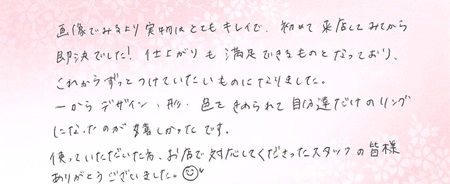 画像でみるより実物はとてもキレイで、初めて来店してみてから
即決でした！仕上がりも満足できるものとなっており、
これからずっとつけていたいものになりました。
一からデザイン・形・色をきめられて自分達だけのリング
になったのが嬉しかったです。
使っていただいた方、お店で対応してくださったスタッフの皆様
ありがとうございました。